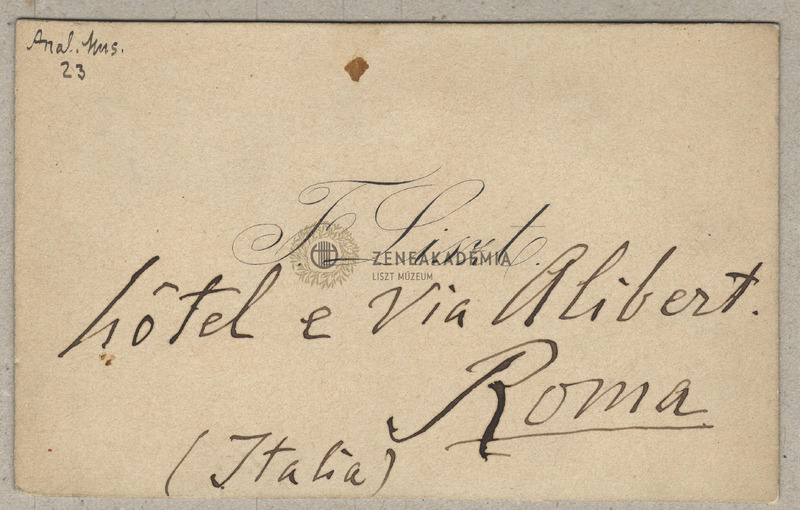 Anal. Mus.
23
F. Liszt.
ZENEAKADÉMIA
LISZT MÚZEUM
hôtel e via Alibert.
Roma
(Italia)